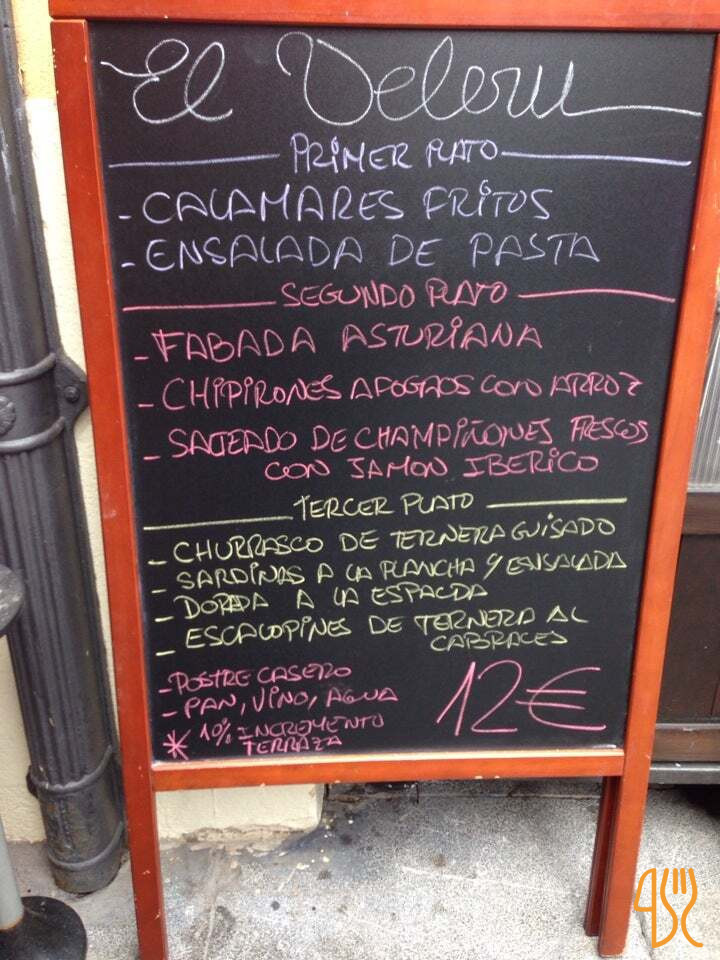 El Deleru
PRIMER PLATO
- CALAMARES FRITOS
- ENSALADA DE PASTA
SEGUNDO PLATO
- FABADA ASTURIANA
- CHIPIRONES AFOGAOS CON ARROZ
- SALTEADO DE CHAMPIÑONES FRESCOS
CON JAMON IBERICO
TERCER PLATO
- CHURRASCO DE TERNERA GUISADO
- SARDINAS A LA PLANCHA Y ENSALADA
- DORADA A LA ESPALDA
- ESCALOPINES DE TERNERA AL
CABRALES
- POSTRE CASERO
- PAN, VINO, AGUA
* 10% INCREMENTO
TERRAZA
12€